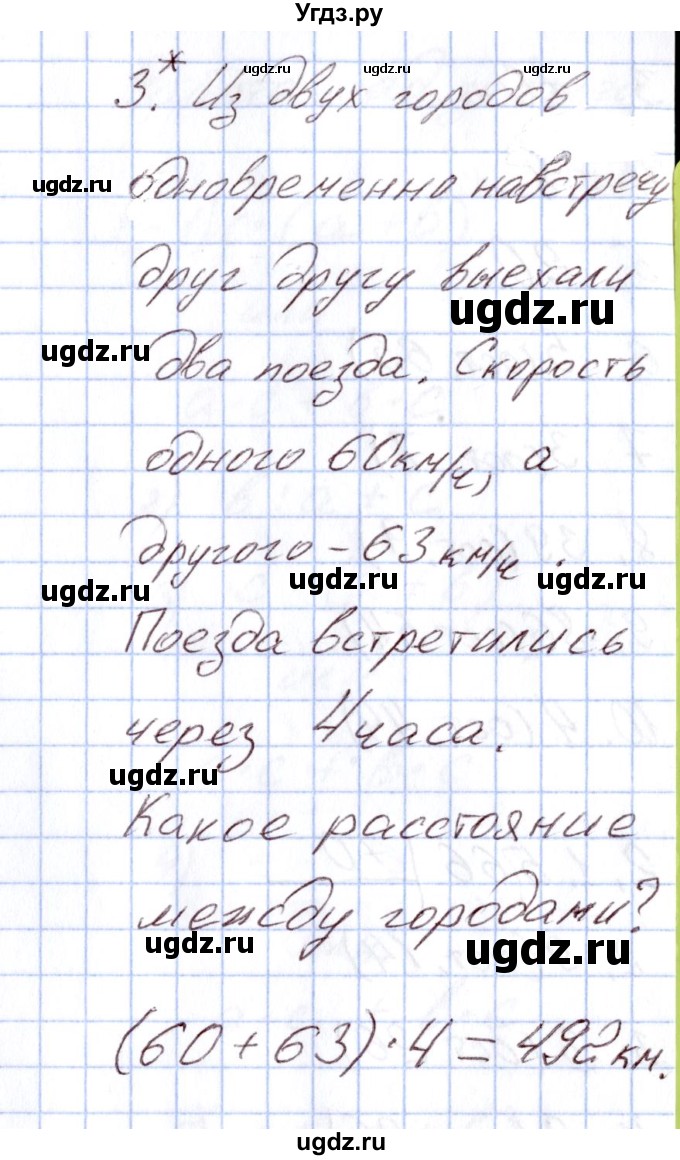 Угдз.ру
3.* Из двух городов
ugdz.ru ugdz.ru ugdz.ru
одновременно навстречу
ugdz.ru ugdz.ru ugdz.ru
друг другу выехали
ugdz.ru
два поезда. Скорость
ugdz.ru
одного 60км/ч, а
другого – 63 км/ч.
ugdz.ru ugdz.ru ugdz.ru
Поезда встретились
через 4 часа.
ugdz.ru
Какое расстояние
между городами?
ugdz.ru ugdz.ru
(60 + 63) · 4 = 492 км.
ugdz.ru